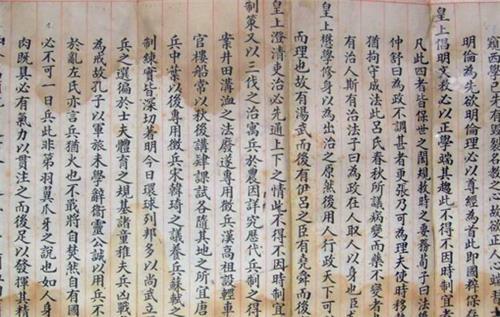 明倫為先欲明倫必以尊經為首此即國粹保存
皇上倡明文教必以正學端其趨此不得不因時制宜
凡此四者皆保世之閎規救時之要務荀子曰法
仲舒曰為政不調甚者更張乃可為理夫使時移
猶拘守成法此呂氏春秋所議病變而藥不變者
有治人斯有治法子曰為政在人取人以身也
皇上懋學修身以為出治之原然後用人行政天下可
而理也故有湯武而後有伊呂之臣有堯舜而後
皇上澄清吏治必先通上下之情此不得不因時制宜
制策又以三代之治寓兵於農因詳究歷代兵制之得
案井田溝洫之法廢遂專用徵兵漢高祖設輕車
官樓船常以秋後講肄課試各隨其地之所宜唐
兵中葉以後專用徵兵宋韓琦之議養兵蘇軾之
制練實皆深切著明今日環球列邦多以尚武立
兵之選徧於士夫體育之規基諸童稚夫兵凶戰
為戒故孔子以軍旅未學辭衛靈公誠以用兵不
於亂左氏亦言兵猶火也不戢將自焚然自有國
必不可一日兵此非第羽翼爪牙之說也如人身
肉既具必有氣力以貫注之而後足以發揮其精